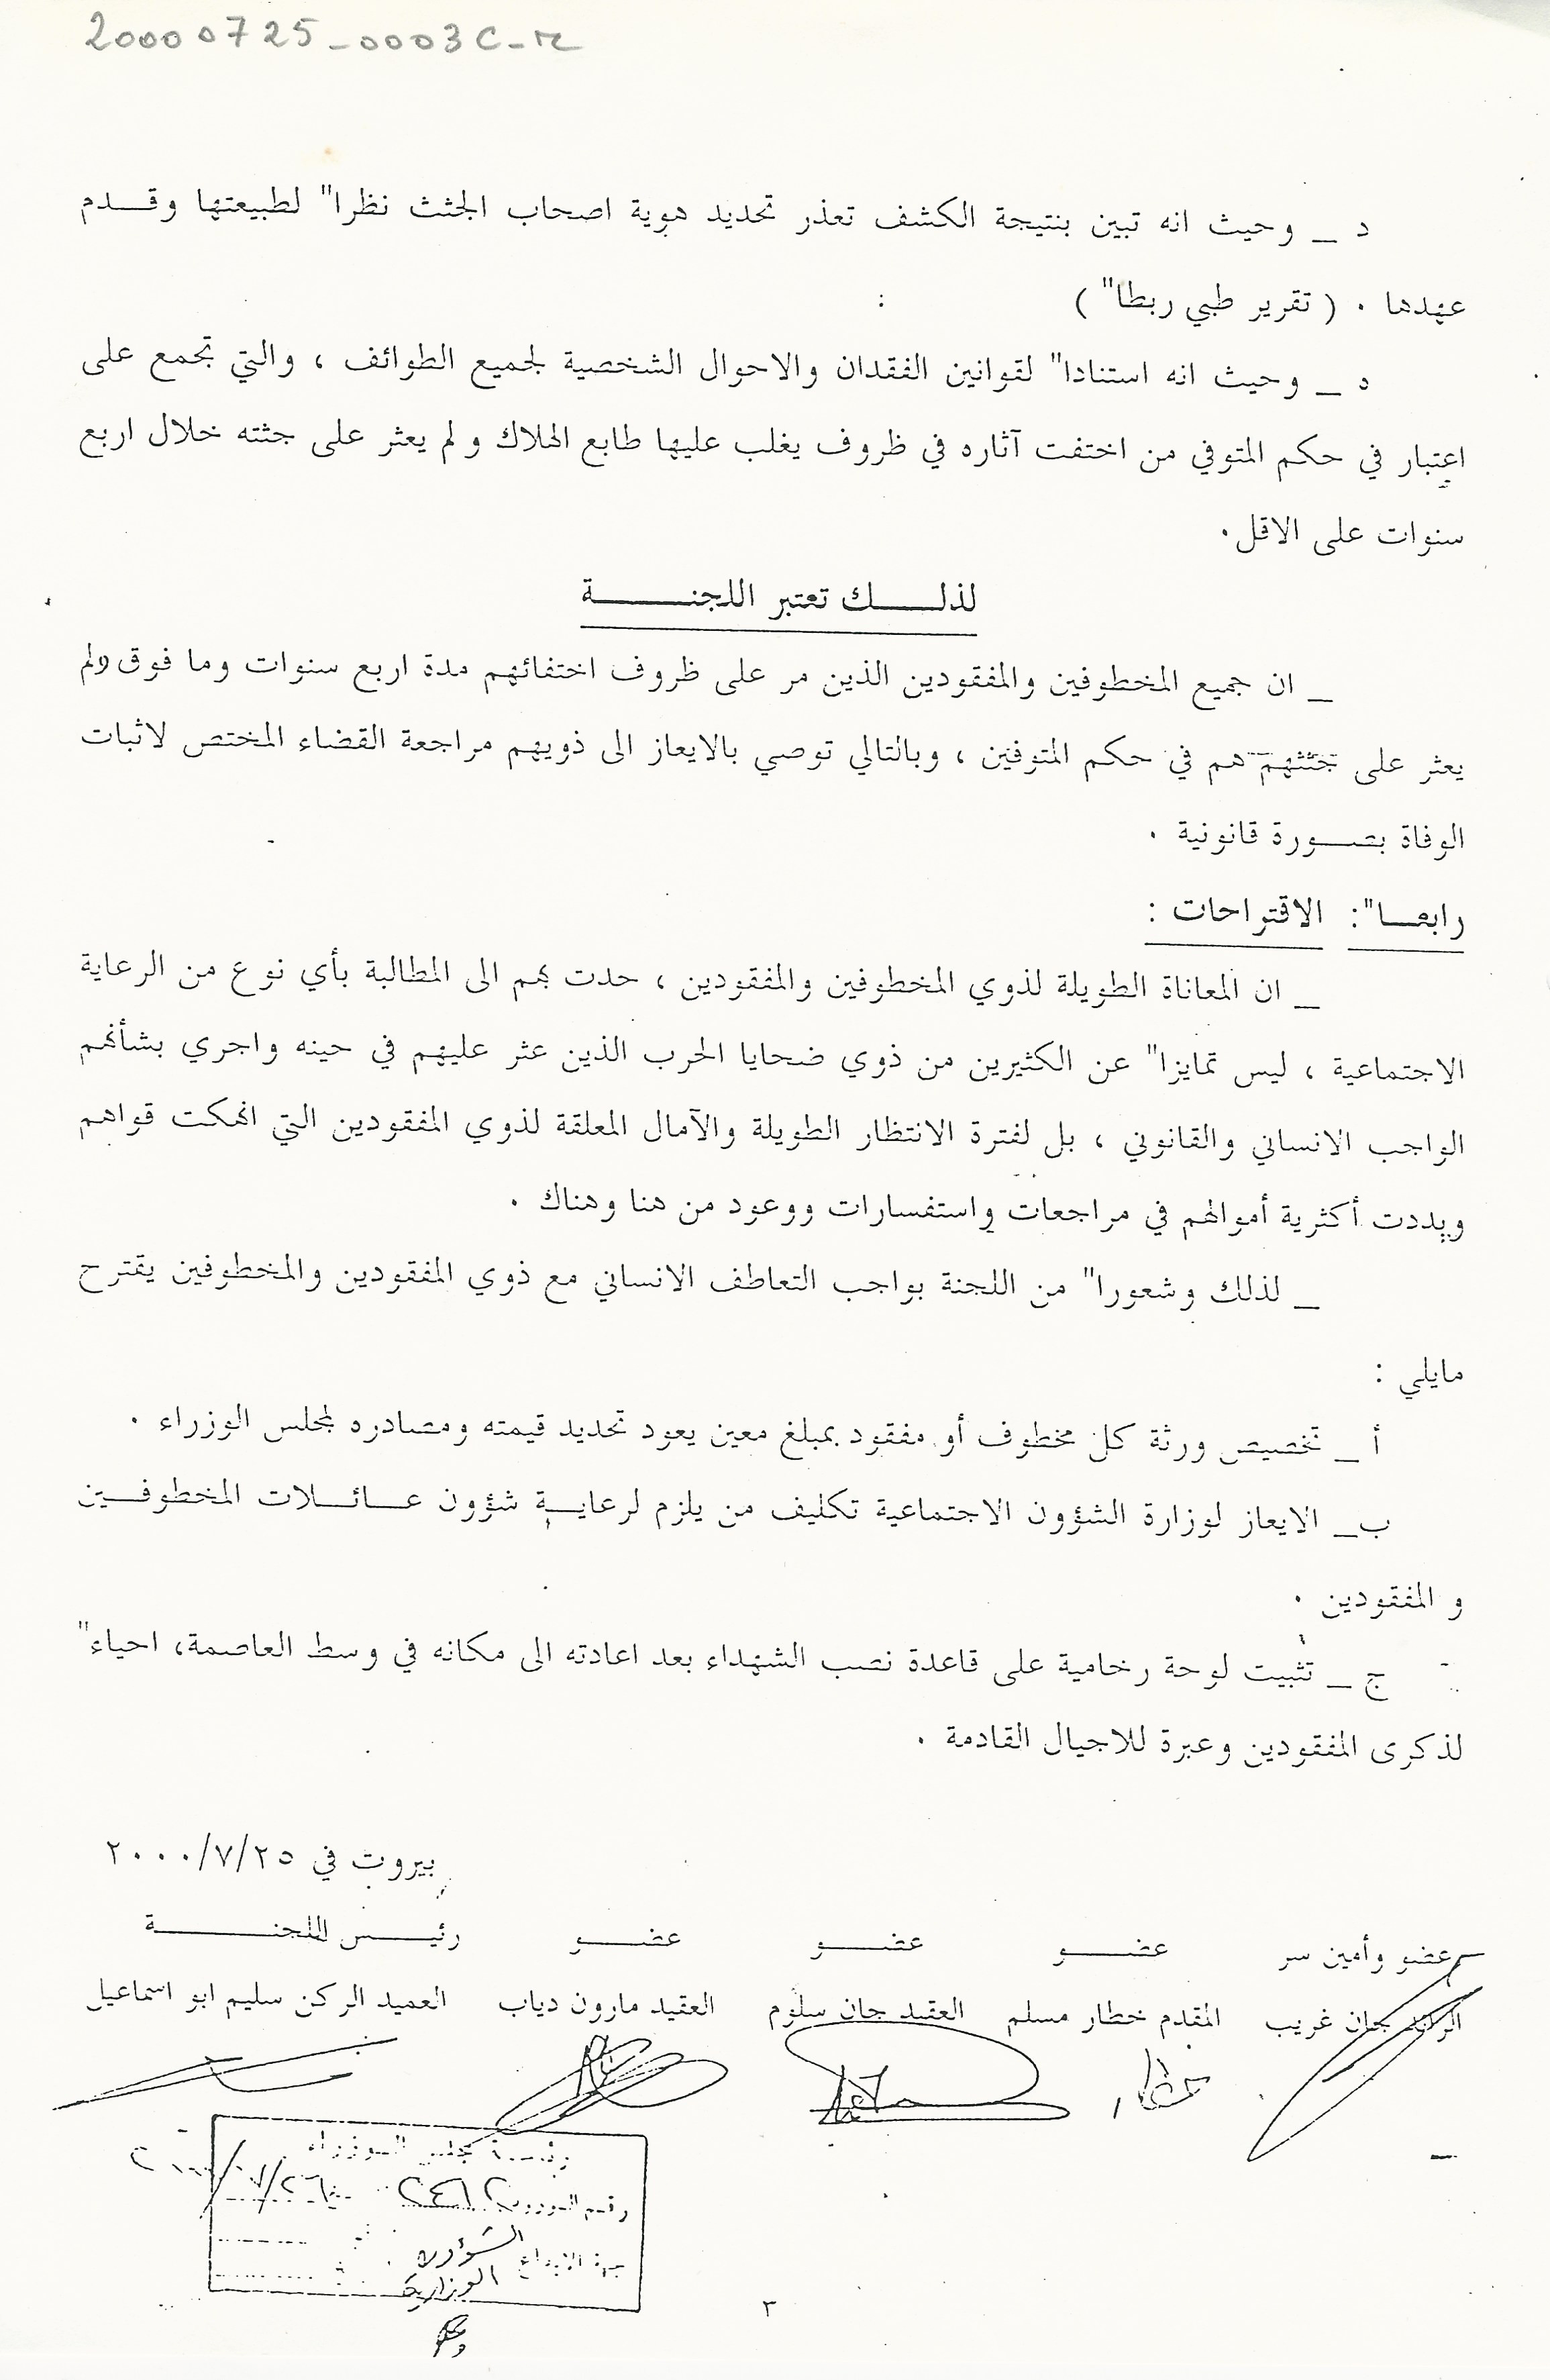 20000725-0003C-re
د _ وحيث انه تبين بنتيجة الكشف تعذر تحديد هوية اصحاب الجثث نظرا" لطبيعتها وقـــدم
عهدها . ( تقرير طبي ربطا" )
ه _ وحيث انه استنادا" لقوانين الفقدان والاحوال الشخصية لجميع الطوائف ، والتي تجمع على
اعتبار في حكم المتوفي من اختفت آثاره في ظروف يغلب عليها طابع الهلاك و لم يعثر على جثته خلال اربع
سنوات على الاقل .
لذلـــك تعتبر اللجنـــة
_ ان جميع المخطوفين والمفقودين الذين مر على ظروف اختفائهم مدة اربع سنوات وما فوق ولم
يعثر على جثثهم هم في حكم المتوفين ، وبالتالي توصي بالايعاز الى ذويهم مراجعة القضاء المختص لاثبات
الوفاة بصــورة قانونية .
رابعــا": الاقتراحات :
_ ان المعاناة الطويلة لذوي المخطوفين والمفقودين ، حدت بهم الى المطالبة بأي نوع من الرعاية
الاجتماعية ، ليس تمايزا" عن الكثيرين من ذوي ضحايا الحرب الذين عثر عليهم في حينه واجري بشأنهم
الواجب الانساني والقانوني ، بل لفترة الانتظار الطويلة والآمال المعلقة لذوي المفقودين التي انهكت قواهم
وبددت أكثرية أموالهم في مراجعات واستفسارات ووعود من هنا وهناك .
_ لذلك وشعورا" من اللجنة بواجب التعاطف الانساني مع ذوي المفقودين والمخطوفين يقترح
مايلي :
أ _ تخصيص ورثة كل مخطوف أو مفقود بمبلغ معين يعود تحديد قيمته ومصادره لمجلس الوزراء .
ب_ الايعاز لوزارة الشؤون الاجتماعية تكليف من يلزم لرعايــة شؤون عــائــلات المخطوفــين
و المفقودين .
ج _ تثبيت لوحة رخامية على قاعدة نصب الشهداء بعد اعادته الى مكانه في وسط العاصمة، احياء"
لذكرى المفقودين وعبرة للاجيال القادمة .
بيروت في ٢٠٠٠/٧/٢٥
عضو وأمين سر عضــو عضــو عضــو رئيــس اللجنـــة
الرائد جان غريب المقدم خطار مسلم العقيد جان سلوم العقيد مارون دياب العميد الركن سليم ابو اسماعيل
خطار
رئاسة مجلس الوزراء
رقم الورود ٢٤١٢
جهة الايداع الشؤون
الوزارية
٣